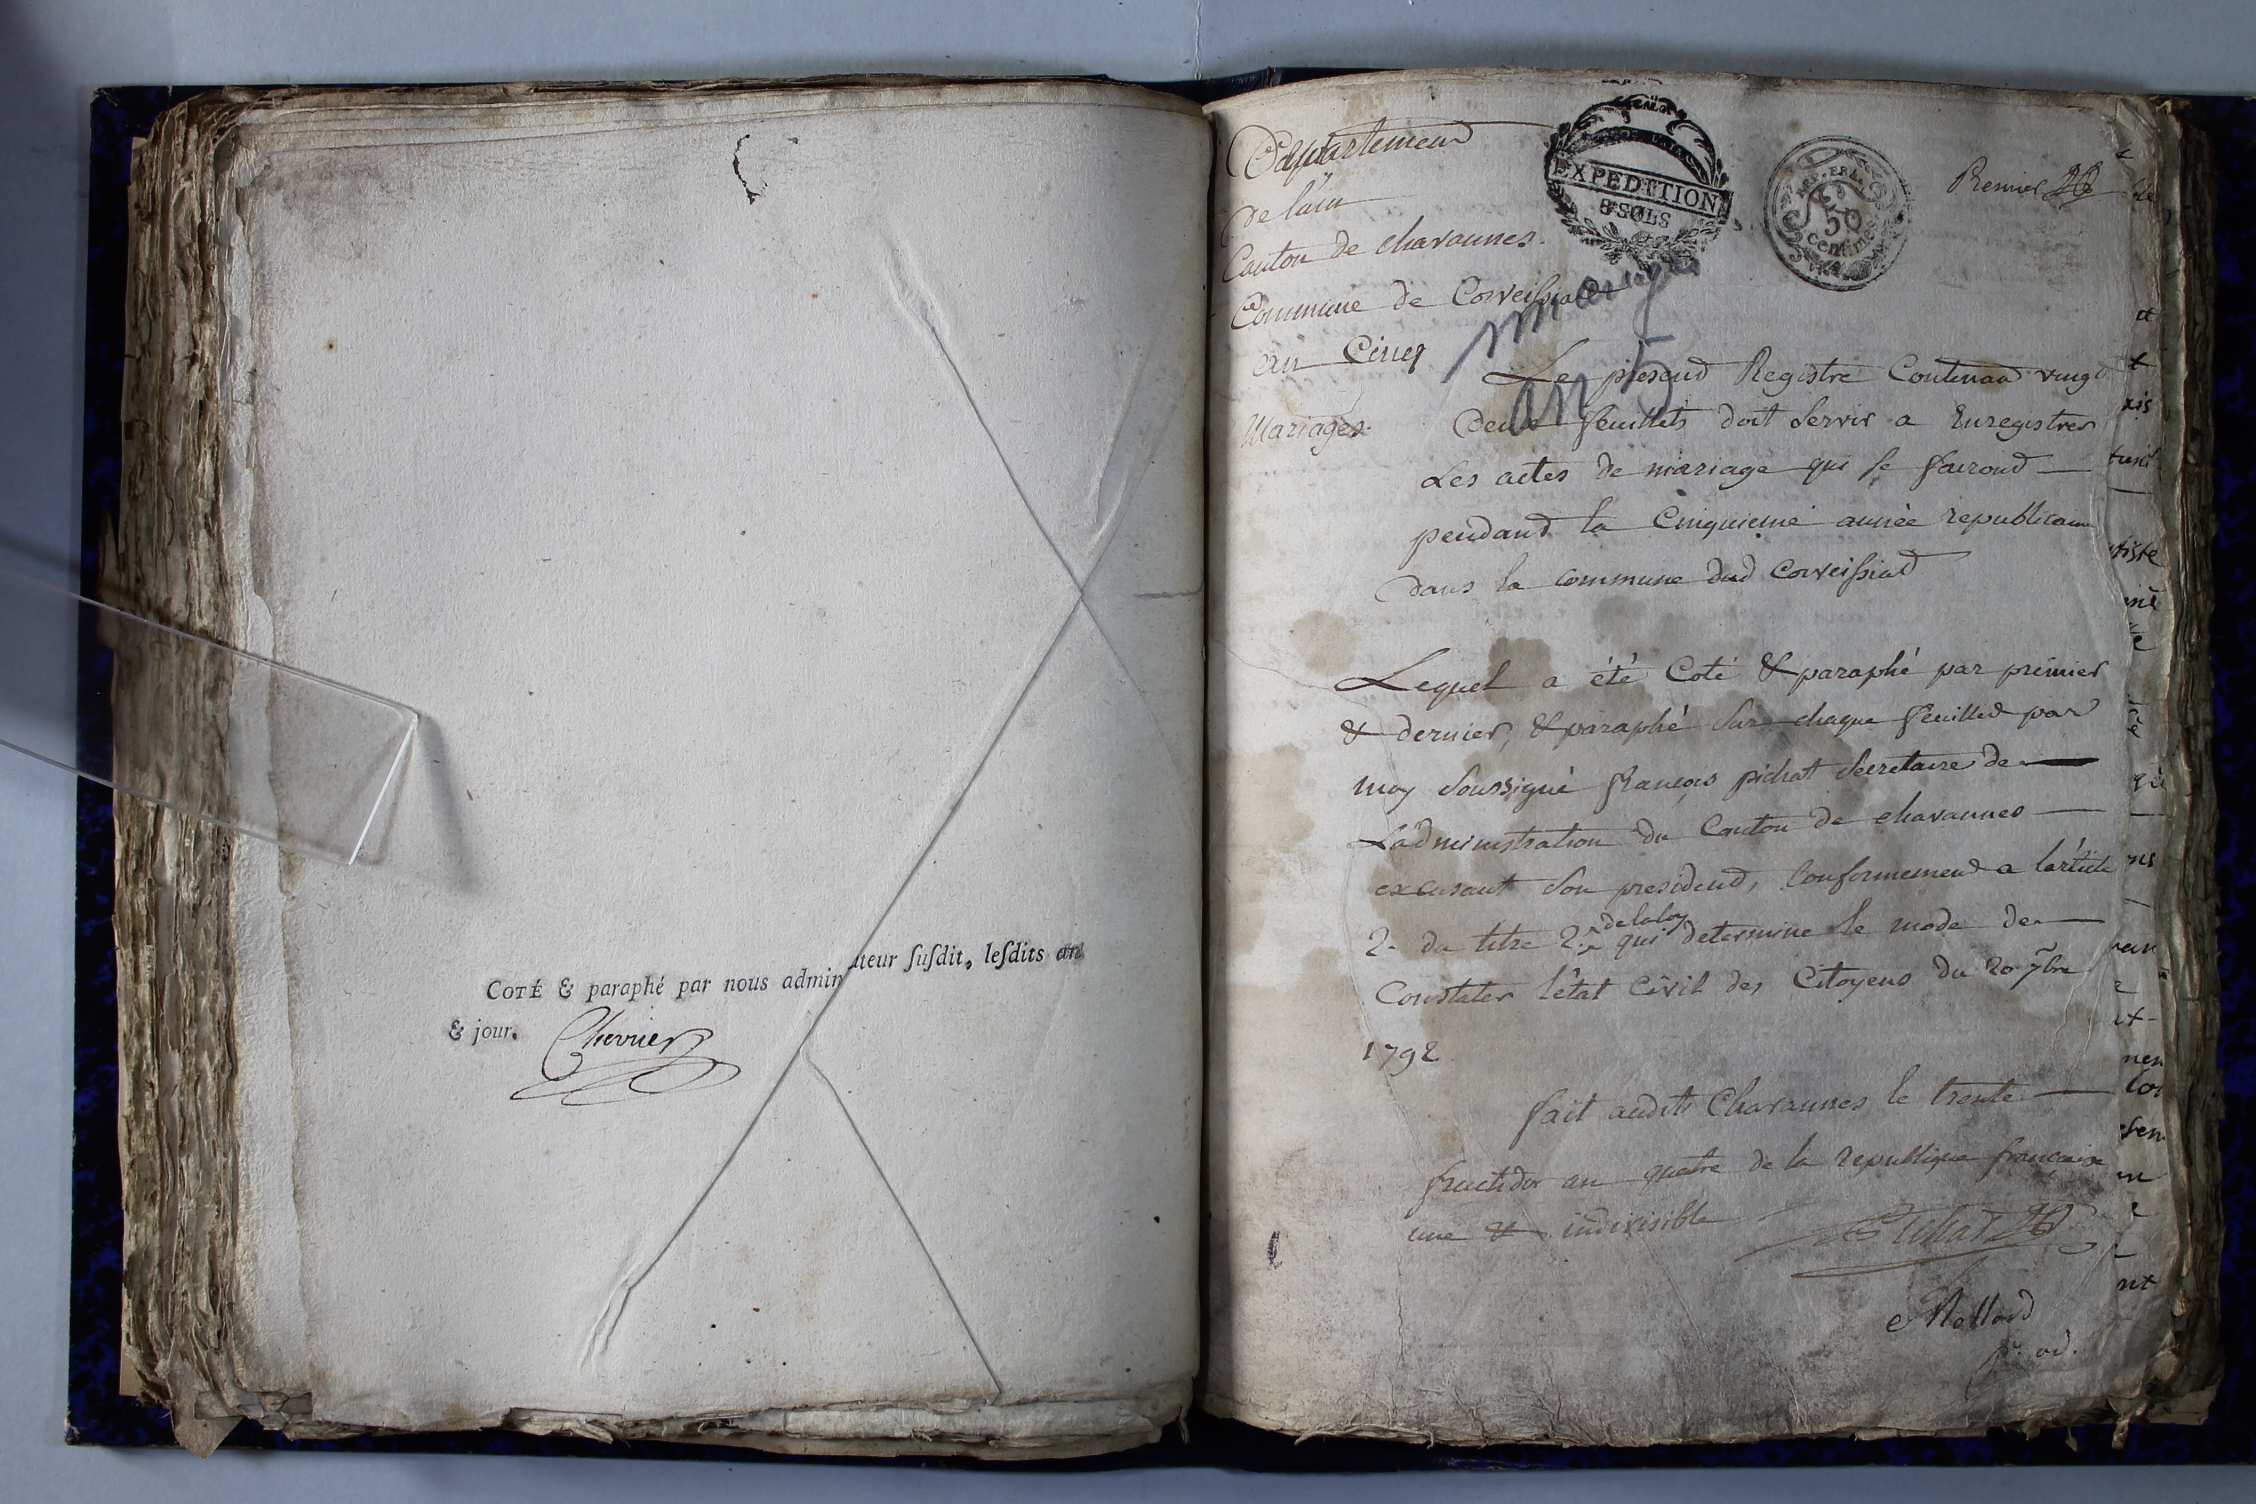 COTÉ & paraphé par nous admin ateur ſuſdit, leſdits an
& jour.
Chevrier
Département
de l'ain
Canton de chavannes.
Commune de Corveissiat
an Cinq
Mariages.
EXPEDITION
8 SOLS
REP. FRA.
50
centimes
Premier
mariages
an 5
Le présend Registre Contenand vingt
deux feuillets doit servir a Enregistrer
Les actes de mariage qui se fairond
pendand la Cinquieme année republicaine
dans la commune dud Corveissiat
Lequel a été Coté & paraphé par premier
& dernier, & paraphé sur chaque feuilled par
moy soussigné françois pichat secretaire de
L'administration du Canton de chavannes
excusant son presidend, Conformemend a l'article
2. du titre 2. de la loy qui determine le mode de
Constater l'état Civil des Citoyens du 20 7bre
1792
fait audit Chavannes le trente
fructidor an quatre de la republique francaise
une & indivisible
Pichat
Mollard